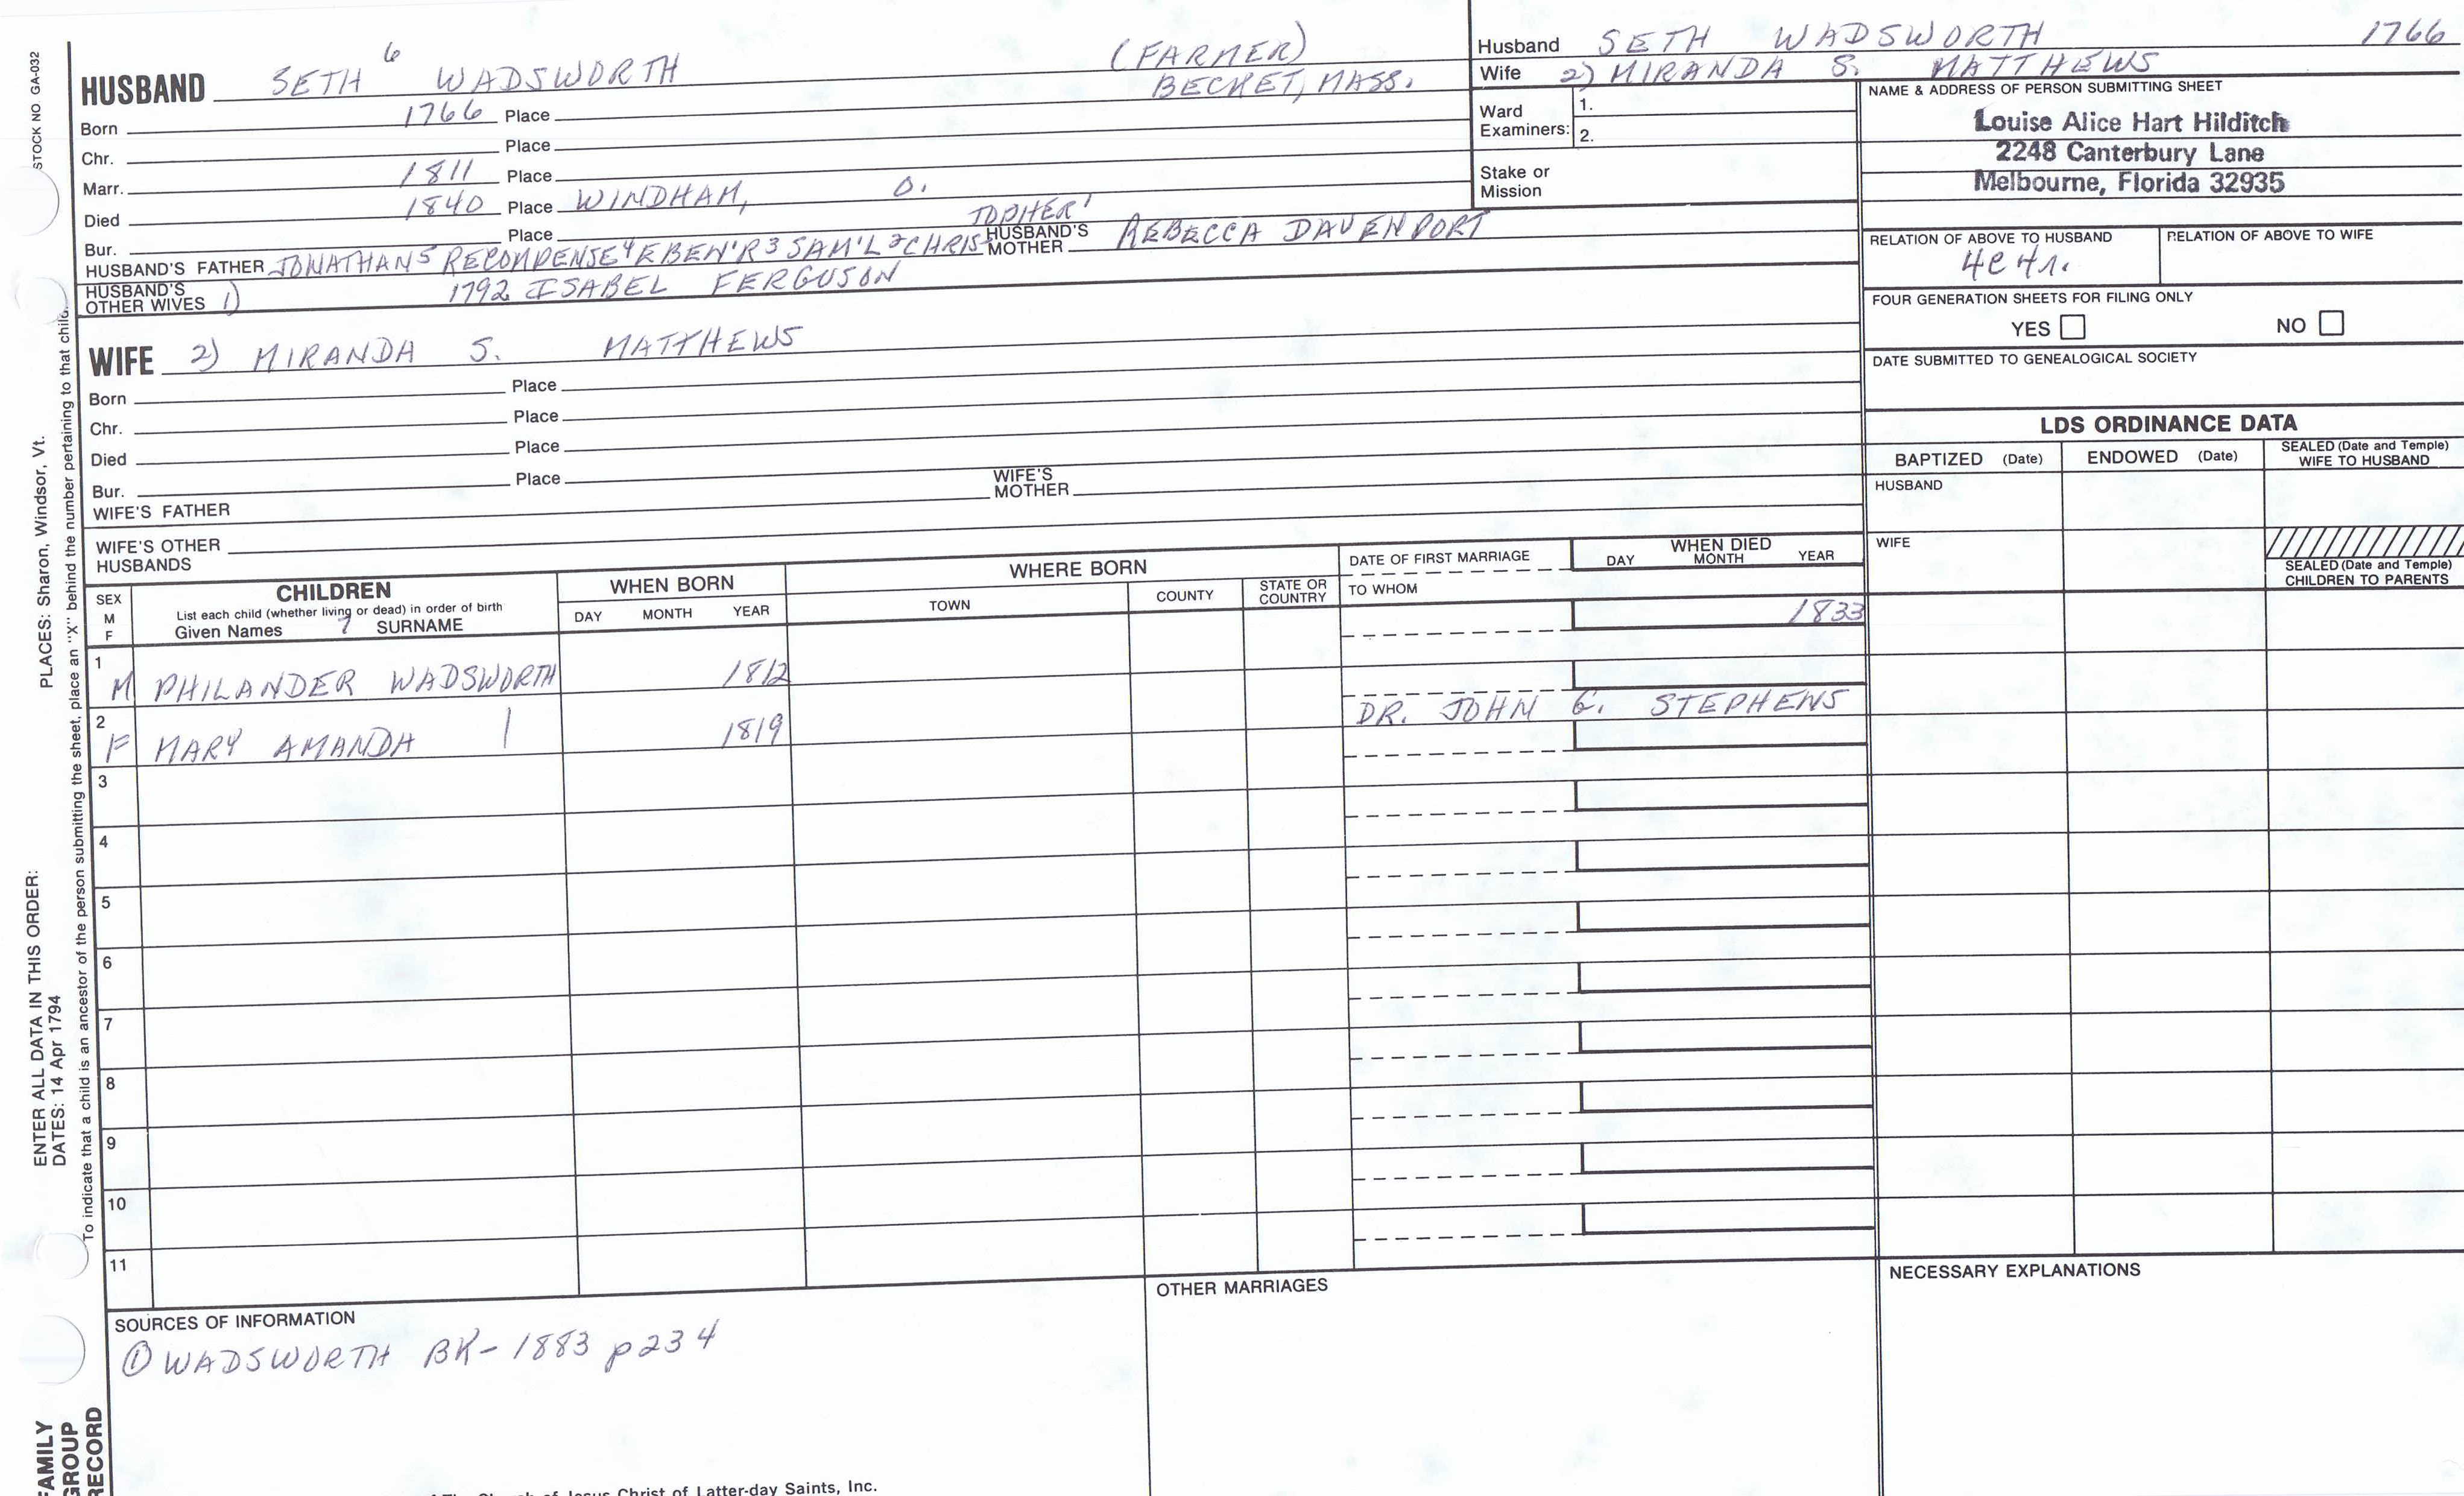 STOCK NO GA-032
PLACES: Sharon, Windsor, Vt.
ENTER ALL DATA IN THIS ORDER:
DATES: 14 Apr 1794
To indicate that a child is an ancestor of the person submitting the sheet, place an "X" behind the number pertaining to that child.
FAMILY
GROUP
RECORD
HUSBAND SETH 6 WADSWORTH (FARMER)
Born 1766 Place BECKET, MASS.
Chr. Place
Marr. 1811 Place
Died 1840 Place WINDHAM, O.
Bur. Place
HUSBAND'S FATHER JONATHAN 5 RECOMPENSE 4 EBEN'R 3 SAM'L 2 CHRISTOPHER 1 HUSBAND'S MOTHER REBECCA DAVENPORT
HUSBAND'S OTHER WIVES 1) 1792 ISABEL FERGUSON
WIFE 2) MIRANDA S. MATTHEWS
Born Place
Chr. Place
Died Place
Bur. Place
WIFE'S FATHER WIFE'S MOTHER
WIFE'S OTHER HUSBANDS
Husband SETH WADSWORTH 1766
Wife 2) MIRANDA S. MATTHEWS
Ward Examiners: 1.
2.
Stake or Mission
NAME & ADDRESS OF PERSON SUBMITTING SHEET
Louise Alice Hart Hilditch
2248 Canterbury Lane
Melbourne, Florida 32935
RELATION OF ABOVE TO HUSBAND RELATION OF ABOVE TO WIFE
4C 4r.
FOUR GENERATION SHEETS FOR FILING ONLY
YES NO
DATE SUBMITTED TO GENEALOGICAL SOCIETY
LDS ORDINANCE DATA
BAPTIZED (Date) ENDOWED (Date) SEALED (Date and Temple) WIFE TO HUSBAND
HUSBAND
WIFE
SEALED (Date and Temple) CHILDREN TO PARENTS
SEX M F
CHILDREN
List each child (whether living or dead) in order of birth
Given Names 7 SURNAME
WHEN BORN
DAY MONTH YEAR
WHERE BORN
TOWN COUNTY STATE OR COUNTRY
DATE OF FIRST MARRIAGE
TO WHOM
WHEN DIED
DAY MONTH YEAR
1 M PHILANDER WADSWORTH 1812 1833
2 F MARY AMANDA | 1819 DR. JOHN G. STEPHENS
3
4
5
6
7
8
9
10
11
SOURCES OF INFORMATION
① WADSWORTH BK - 1883 p234
OTHER MARRIAGES
NECESSARY EXPLANATIONS
The Church of Jesus Christ of Latter-day Saints, Inc.